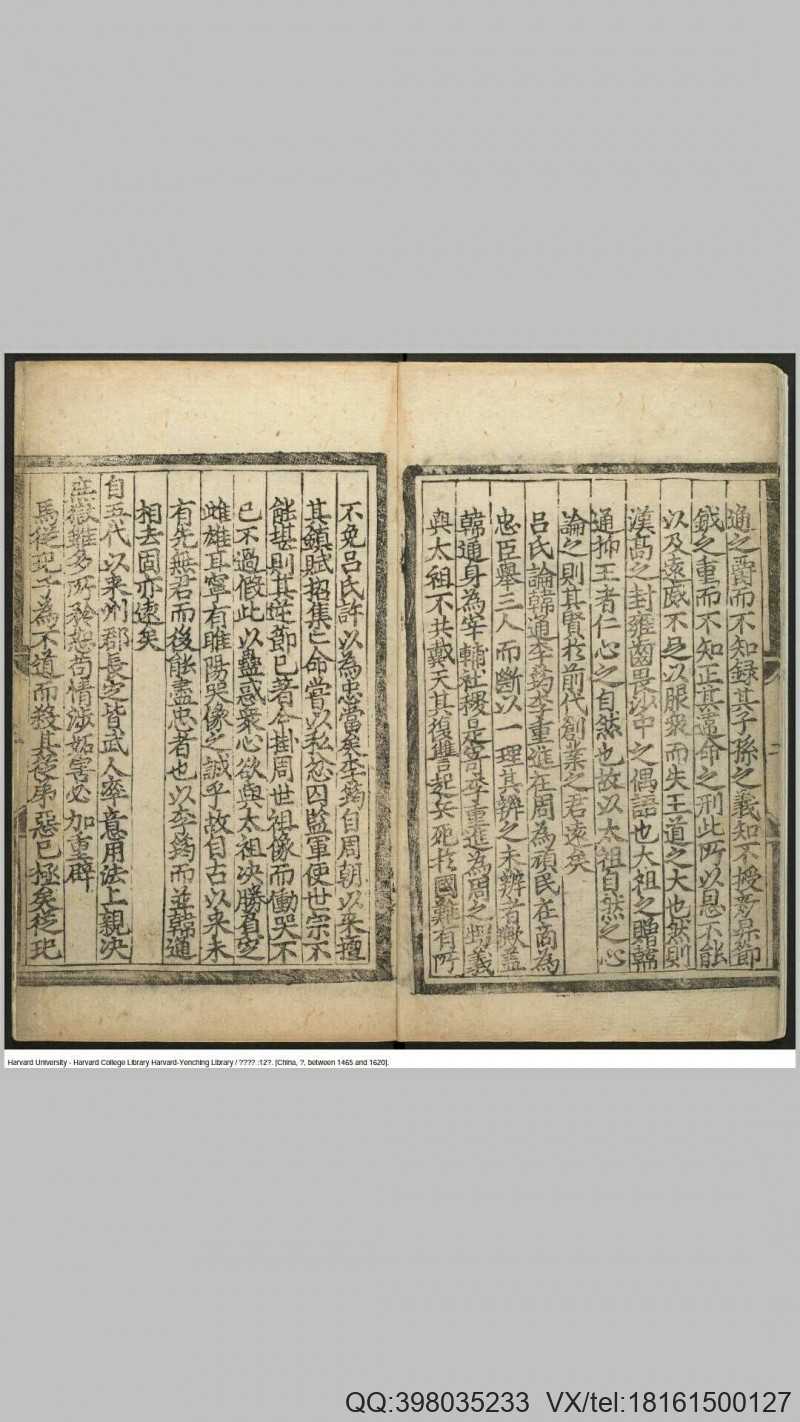 通之爵而不知録其子孫之義知不授彥昇節
鉞之重而不知正其違命之刑此所以恩不能
以及遠威不足以服衆而失王道之大也然則
漢高之封雍齒畏沙中之偶語也太祖之贈韓
通抑王者仁心之自然也故以太祖自然之心
論之則其賢於前代創業之君遠矣
呂氏論韓通李筠李重進在周為頑民在商為
忠臣舉三人而斷以一理其辨之未辨者歟蓋
韓通身為宰輔社稷是寄李重進為周之甥義
與太祖不共戴天其復讐起兵死於國難有所
不免呂氏許以為忠當矣李筠自周朝以來擅
其鎮賦招集亡命嘗以私忿囚監軍使世宗不
能堪則其逆節已著今掛周世祖像而慟哭不
已不過假此以蠱惑衆心欲與太祖决勝負定
雌雄耳寧有睢陽哭像之誠乎故自古以來未
有先無君而後能盡忠者也以李筠而並韓通
相去固亦遠矣
自五代以來州郡長吏皆武人率意用法上親决
庶獄雖多所矜恕苟情涉妬害必加重辟
馬從玘子為不道而殺其從弟惡已極矣從玘
Harvard University - Harvard College Library Harvard-Yenching Library / ???? :12?. [China, ?, between 1465 and 1620].
QQ:398035233 VX/tel:18161500127